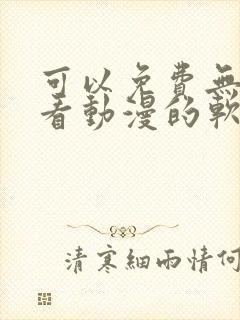 可以免費無
看動漫的軟
清寒細雨情何